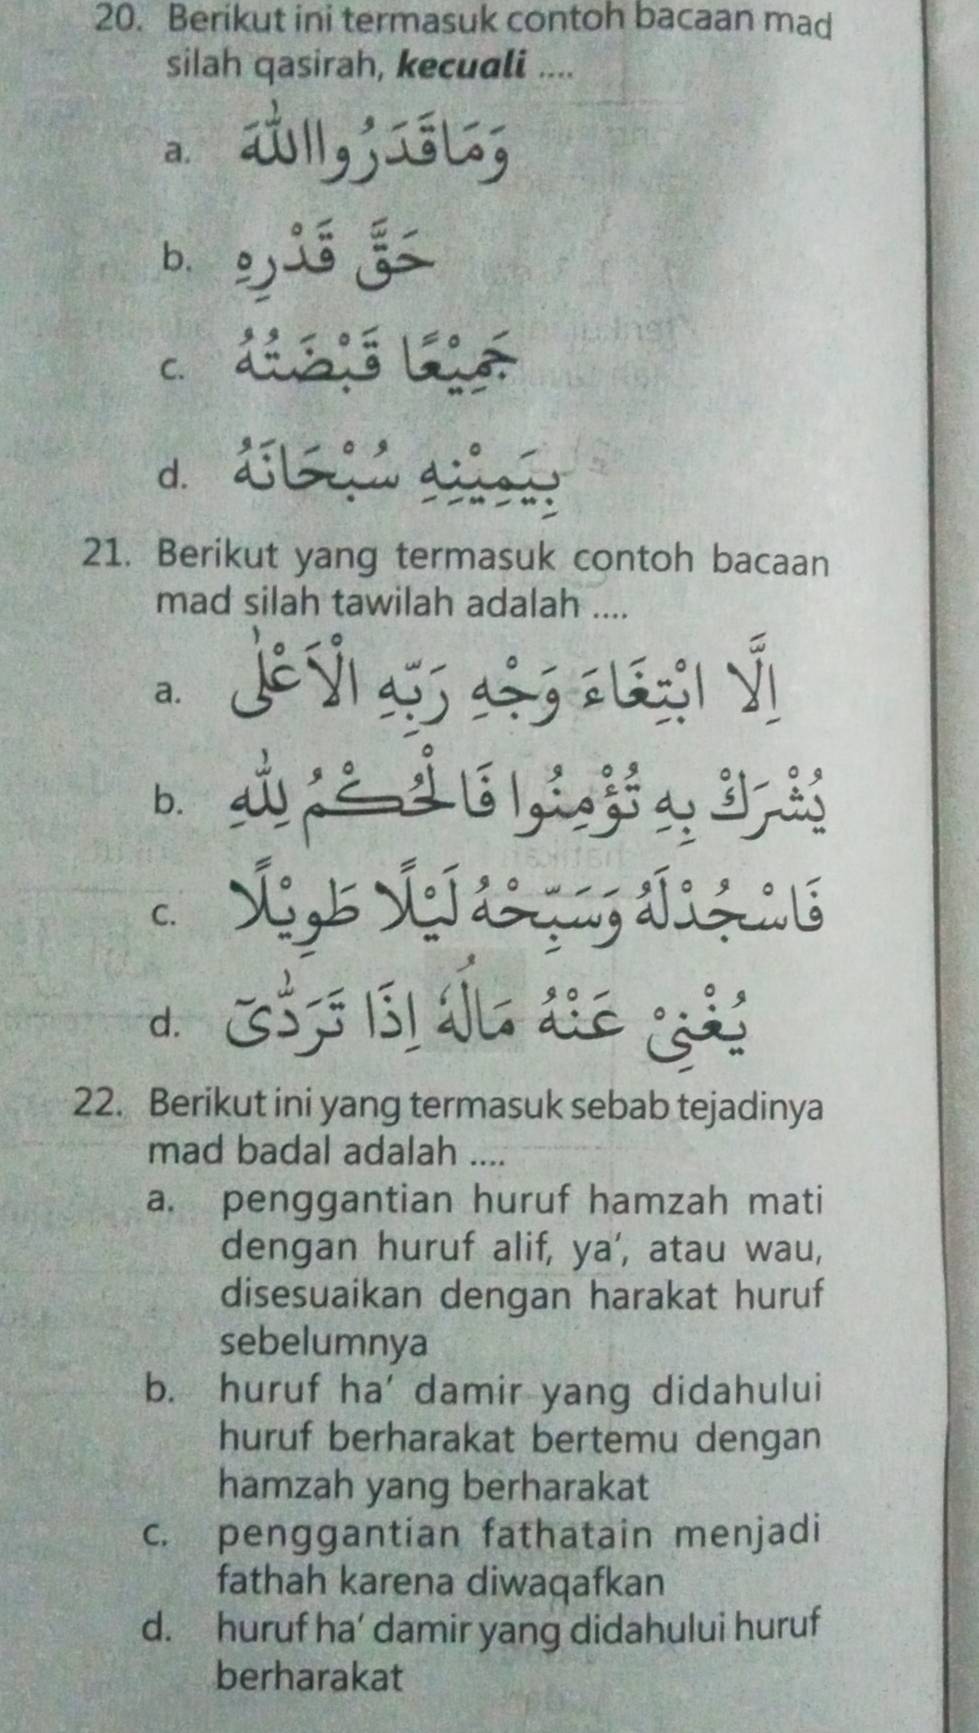 20. Berikut ini termasuk contoh bacaan mad
silah qasirah, kecuali ....
a. وَمَاقَدَرُوااللّٰهَ
b. حَقَّ قَدْرِهِ
c. جَمِيْعًا قَبْضَتُهُ
d. بِيَمِيْنِهِ سُبْحَانَهُ
21. Berikut yang termasuk contoh bacaan
mad silah tawilah adalah ....
a. اِلَّا ابْتِغَاءَ وَجْهِ رَبِّهِ الْاَعْلٰى
b. يُشْرَكْ بِهِ تُؤْمِنُوا فَالْحُكْمُ لِلّٰهِ
c. فَاسْجُدْلَهُ وَسَبِّحْهُ لَيْلًا طَوِيْلًا
d. يُغْنِيْ عَنْهُ مَالُهُ إِذَا تَرَدّٰىٓ
22. Berikut ini yang termasuk sebab tejadinya
mad badal adalah ....
a. penggantian huruf hamzah mati
dengan huruf alif, ya’, atau wau,
disesuaikan dengan harakat huruf
sebelumnya
b. huruf ha’ damir yang didahului
huruf berharakat bertemu dengan
hamzah yang berharakat
c. penggantian fathatain menjadi
fathah karena diwaqafkan
d. huruf ha’ damir yang didahului huruf
berharakat